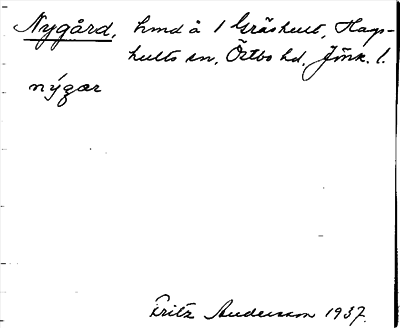 Nygård, hmd å 1 Gräshult, Hags-
hults sn, Östbo hd, Jönk. l.
nýgær
Fritz Andersson 1937.